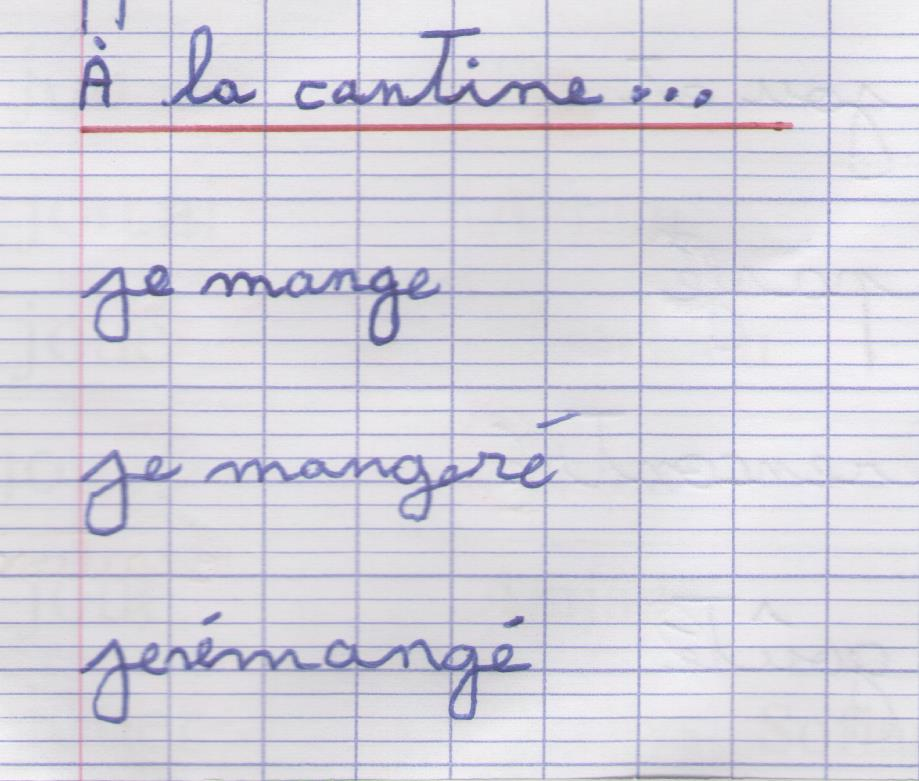 À la cantine...
je mange
je mangeré
jerémangé